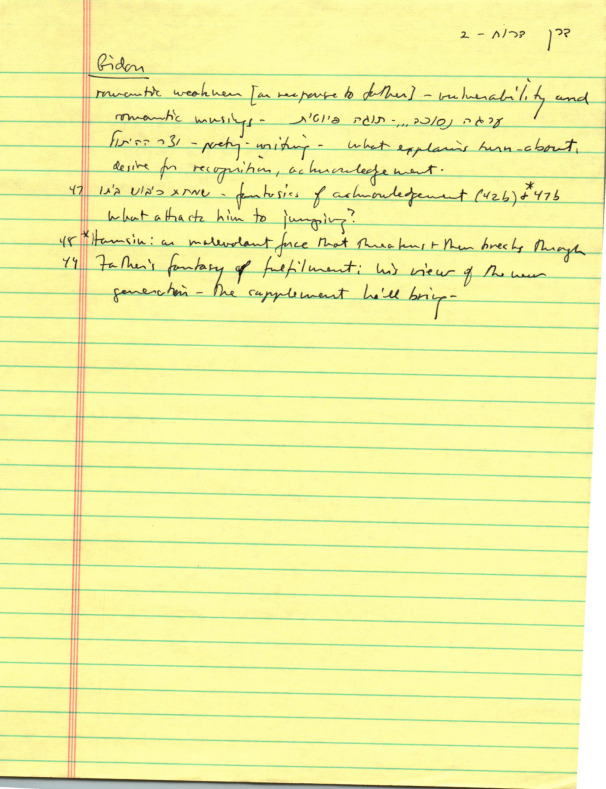 דרך הרוח - 2
Gidon
romantic weakness [as response to father] - vulnerability and
romantic musings - ערגה נסוכה... - תוגה פיוטית
יצר ההיתול - poetry-writing - what explains turn-about,
desire for recognition, acknowledgement.
47 - fantasies of acknowledgement (42b) & *47b
what attracts him to jumping?
48 *Hamsin: as malevolant force that threatens & then breaks through
49 Father's fantasy of fulfilment: his view of the new
generation - the supplement he'll bring -